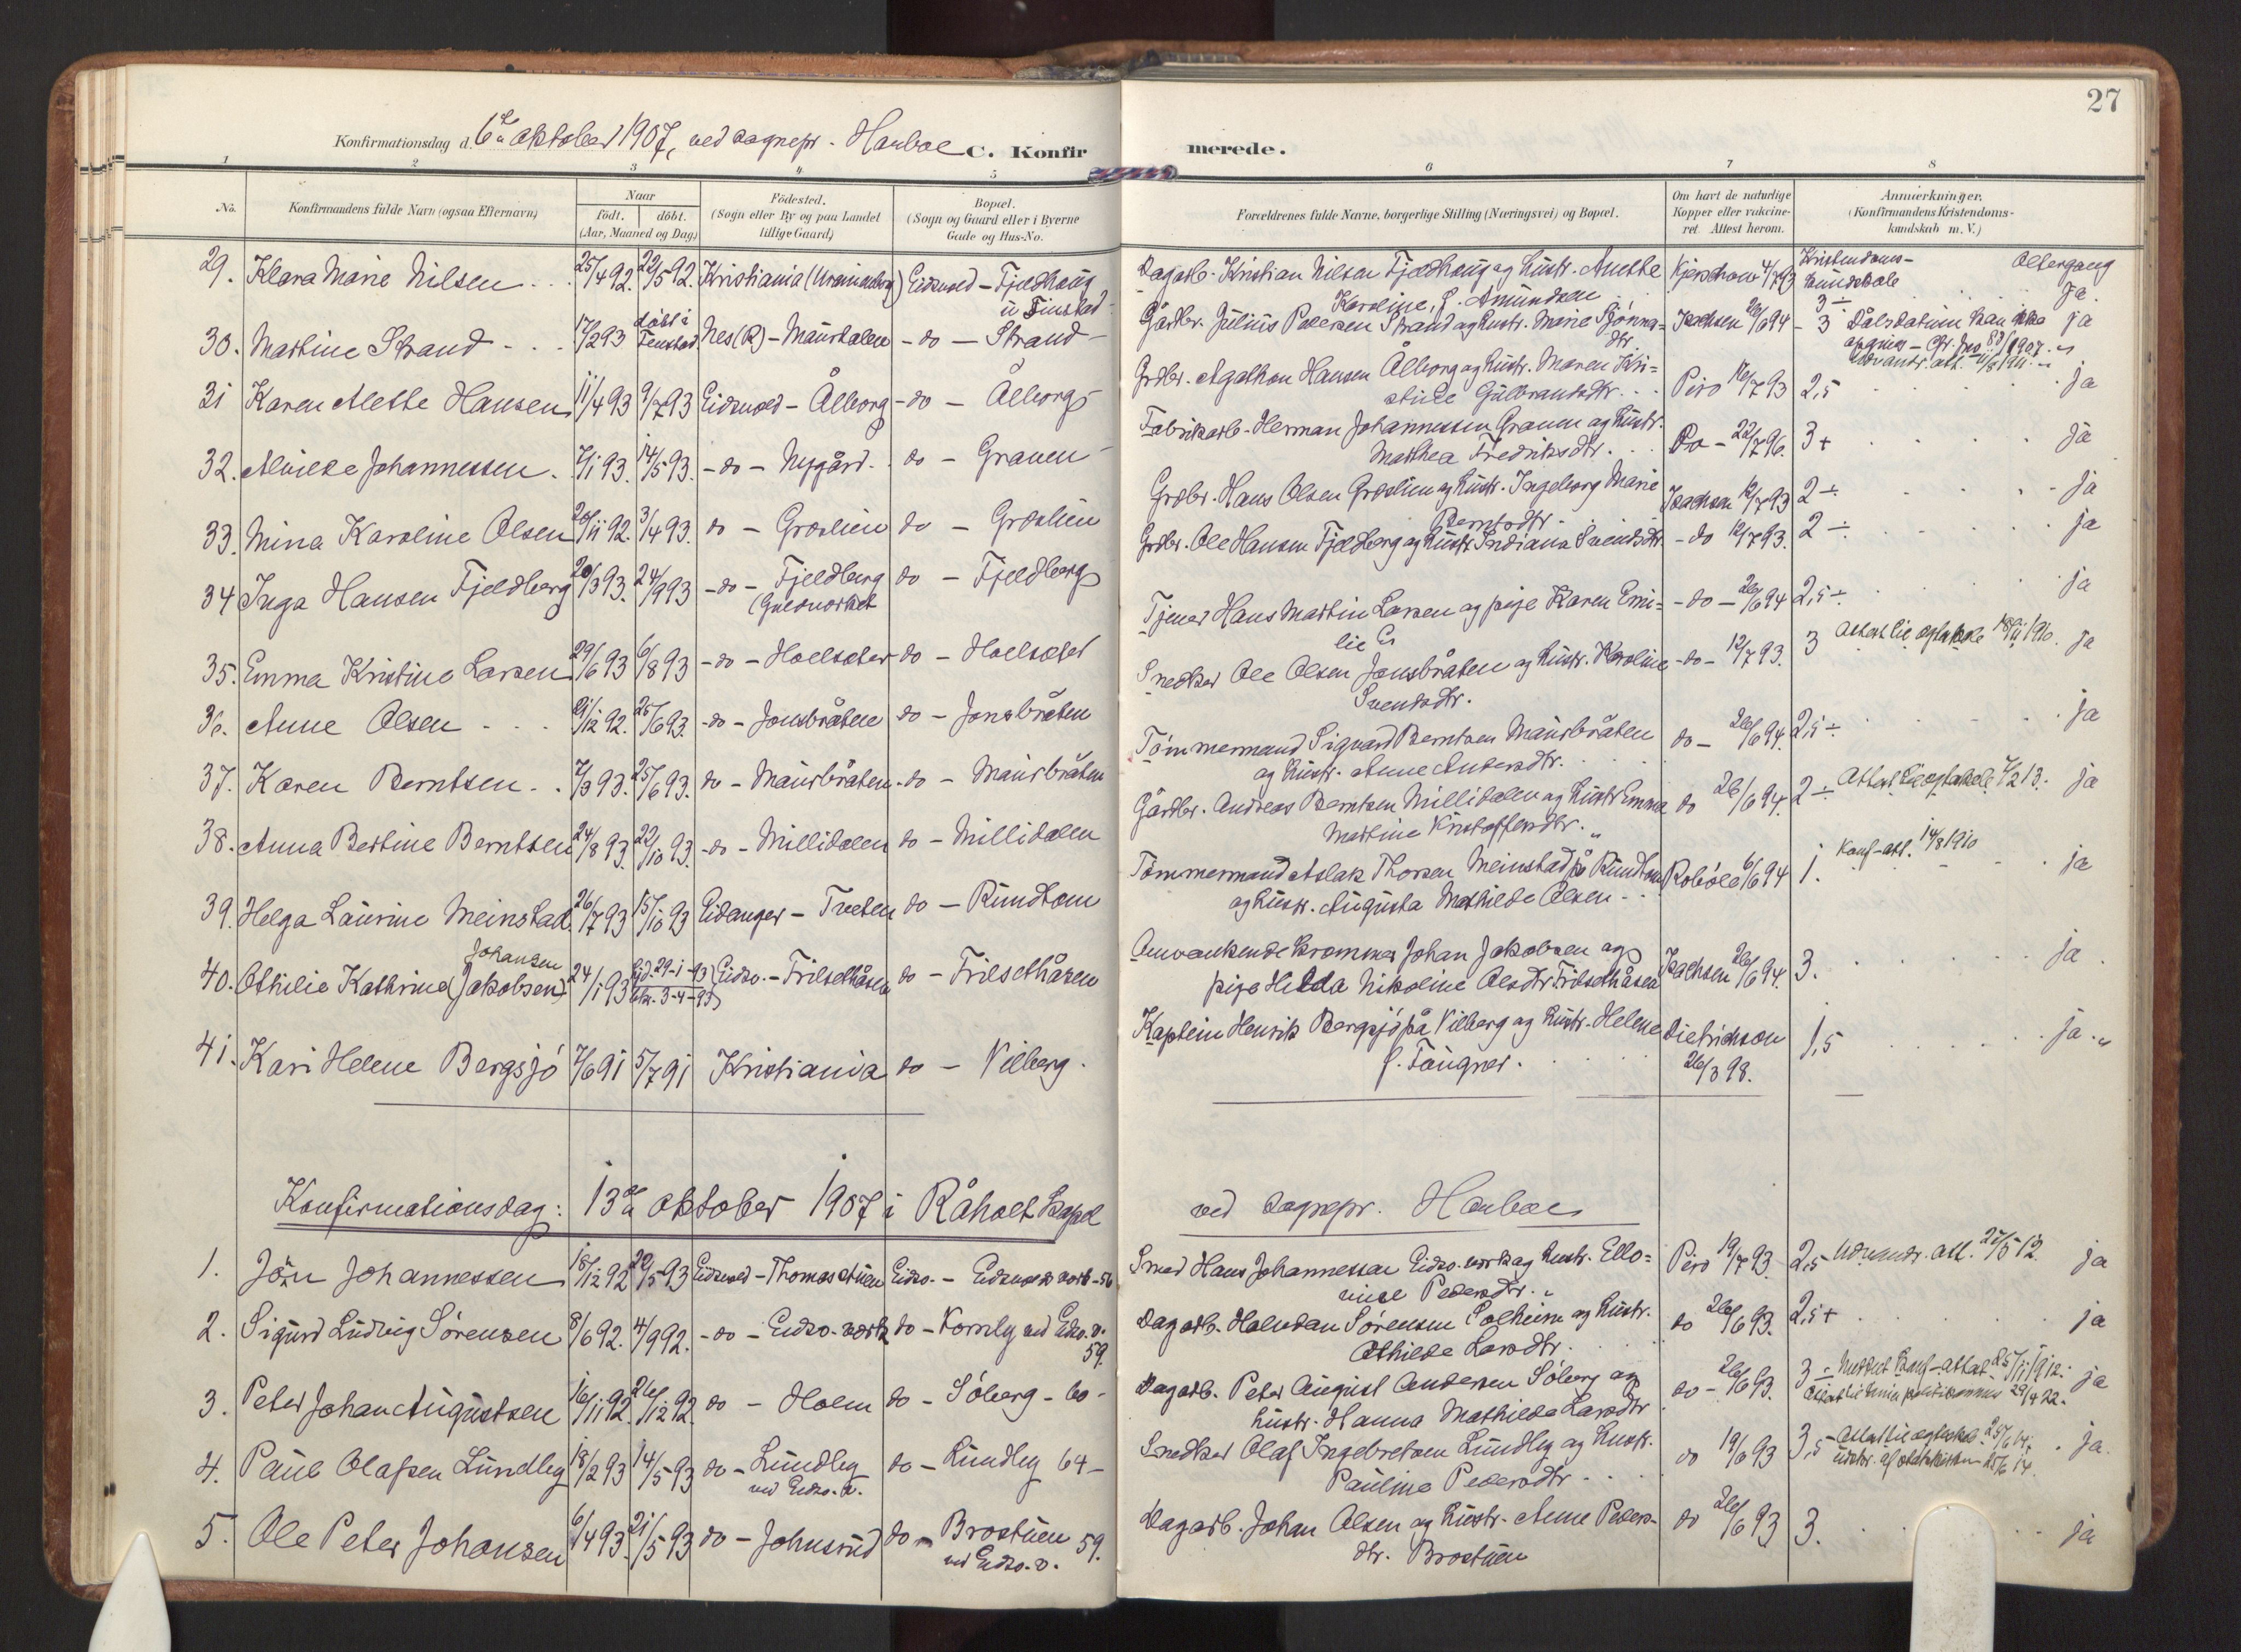 27
Konfirmationsdag d. 6te oktober 1907, ved sognepr. Hauboe C. Konfirmerede.
1 2 3 4 5 6 7 8
No. Konfirmandens fulde Navn (ogsaa Efternavn) Naar födt. döbt. (Aar, Maaned og Dag) Födested. (Sogn eller By og paa Landet tillige Gaard) Bopæl. (Sogn og Gaard eller i Byerne Gade og Hus-No. Forældrenes fulde Navne, borgerlige Stilling (Næringsvei) og Bopæl. Om havt de naturlige Kopper eller vakcineret. Attest herom. Anmærkninger. (Konfirmandens Kristendomskundskab m. V.)
Kristendomskundskab Altergang
29. Klara Marie Nilsen 25/4 92. 22/5 92. Kristiania (Uranienborg) Eidsvold - Fjeldhaug u Finstad Dagarb. Kristian Nilsen Fjeldhaug og hustr. Anette Karoline, f. Amundsen Kjerschow 4/7 93 3 ÷ ja.
30. Martine Strand 17/2 93 döbt i Fenstad Nes (R) - Maurdalen - do - Strand Gårdbr. Julius Pedersen Strand og hustr. Marie Gjönnadtr. Isachsen 26/6 94 - 3 Dåbsdatum kan ikke opgives - ja
Udvandr. att.
31 Karen Alette Hansen 11/4 93 9/7 93 Eidsvold - Ålborg - do - Ålborg Grdbr. Agathon Hansen Ålborg og hustr. Maren Kristine Gulbrandsdtr. Piro 16/7 93 2,5 ja
32. Alvilde Johannessen. 7/1 93. 14/5 93. - do - Nygård. do - Graven Fabrikarb. Herman Johannessen Graven og hustr. Mathea Fredriksdtr. Do - 22/7 96. 3+ ja
33. Mina Karoline Olsen 20/11 92. 3/4 93. do - Græslien do - Græslien Grdbr. Hans Olsen Græslien og hustr. Ingeborg Marie Berntsdtr. Isachsen 12/7 93 2 ÷ ja
34 Inga Hansen Fjeldberg 20/3 93. 24/9 93 - do - Fjeldberg (Guldverket do - Fjeldberg Grdbr. Ole Hansen Fjeldberg og hustr. Indiana Svendsdtr. - do 12/7 93. 2 ÷ ja
35. Emma Kristine Larsen 29/6 93 6/8 93 - do - Holsæter do - Holsæter Tjener Hans Martin Larsen og pige Karen Emilie - do - 26/6 94 2,5 ÷ ja
36. Anne Olsen 21/12 92. 25/6 93. - do - Jonsbråten do - Jonsbråten Snedker Ole Olsen Jonsbråten og hustr. Karoline Svendsdtr. - do - 12/7 93. 3 Attest lie ægteskab 18/11 1910. ja
37. Karen Berntsen 7/3 93. 25/6 93. do - Maursbråten - do - Maursbråten Tömmermand Sigvard Berntsen Maursbråten og hustr. Anne Andersdtr. do - 26/6 94. 2,5 ÷ ja
38. Anna Bertine Berntsen 24/8 93. 22/10 93. - do - Millidalen do - Millidalen Gårdbr. Andreas Berntsen Millidalen og hustr Emma Martine Kristoffersdtr. do 26/6 94. 2 ÷ Attest lie ægteskab 7/2 13. ja
39. Helga Laurine Meinstad 26/7 93 15/10 93 Eidanger - Tveten do - Rundtom Tömmermand Aslak Thorsen Meinstad på Rundtom og hustr. Augusta Mathilde Olsen Robóle 6/6 94 1. Konf-att. 14/8 1910 ja
40. Othilie Kathrine Johansen (Jakobsen) 24/1 93 Hjd. 29-1-93 (st. 3-4-93) Eidsv. - Frilsethåsen do - Frilsethåsen Omvankende kræmmer Johan Jakobsen og pige Helda Nikoline Olsdtr. Frilsethåsen Isachsen 26/6 94. 3. ja.
41. Kari Helene Bergsjö 7/6 91 5/7 91 Kristiania do - Vilberg. Kaptein Henrik Bergsjö på Vilberg og hustr. Helene f. Faugner. Dietrichson 26/3 98. 1,5 ja.
Konfirmationsdag: 13de oktober 1907 i Råholt kapel ved sognepr. Hauboe
1. Jörn Johannessen 18/12 92 22/5 93 Eidsvold - Thomasstuen Eidsv. - Eidsvolds værk - 56 Smed Hans Johannessen Eidsv. værk og hustr. Ellovine Pedersdtr. Piro 19/7 93. 2,5 Udvandr. att. 27/5 12. ja
2. Sigurd Ludvig Sörensen 8/6 92. 4/9 92. - do - Eidsv. værk do - Kornly ved Eidsv. v. 59. Dagarb. Halvdan Sörensen Solheim og hustr. Othilde Larsdtr. do 26/6 93. 2,5+ ja
3. Peter Johan Augustsen 16/11 92. 26/12 92. do - Holm do - Söberg - 60 - Dagarb. Peter August Andersen Söberg og hustr. Hanna Mathilde Larsdtr do - 26/6 93. 3 ÷ Meddelt konf-attest 25/11 1912. ja
4. Paul Olafsen Lundby 18/2 93 14/5 93 do - Lundby ved Eidsv. v. do - Lundby 64 - Snedker Olaf Ingebretsen Lundby og hustr. Pauline Pedersdtr. do 19/6 93 3,5 Attest lie ægteskab ja.
5. Ole Peter Johansen 6/4 93. 21/5 93 do - Johnsrud do - Brostuen ved Eidsv. v. 59. Dagarb. Johan Olsen og hustr. Anne Pedersdtr. Brostuen do 26/6 93 3. ja